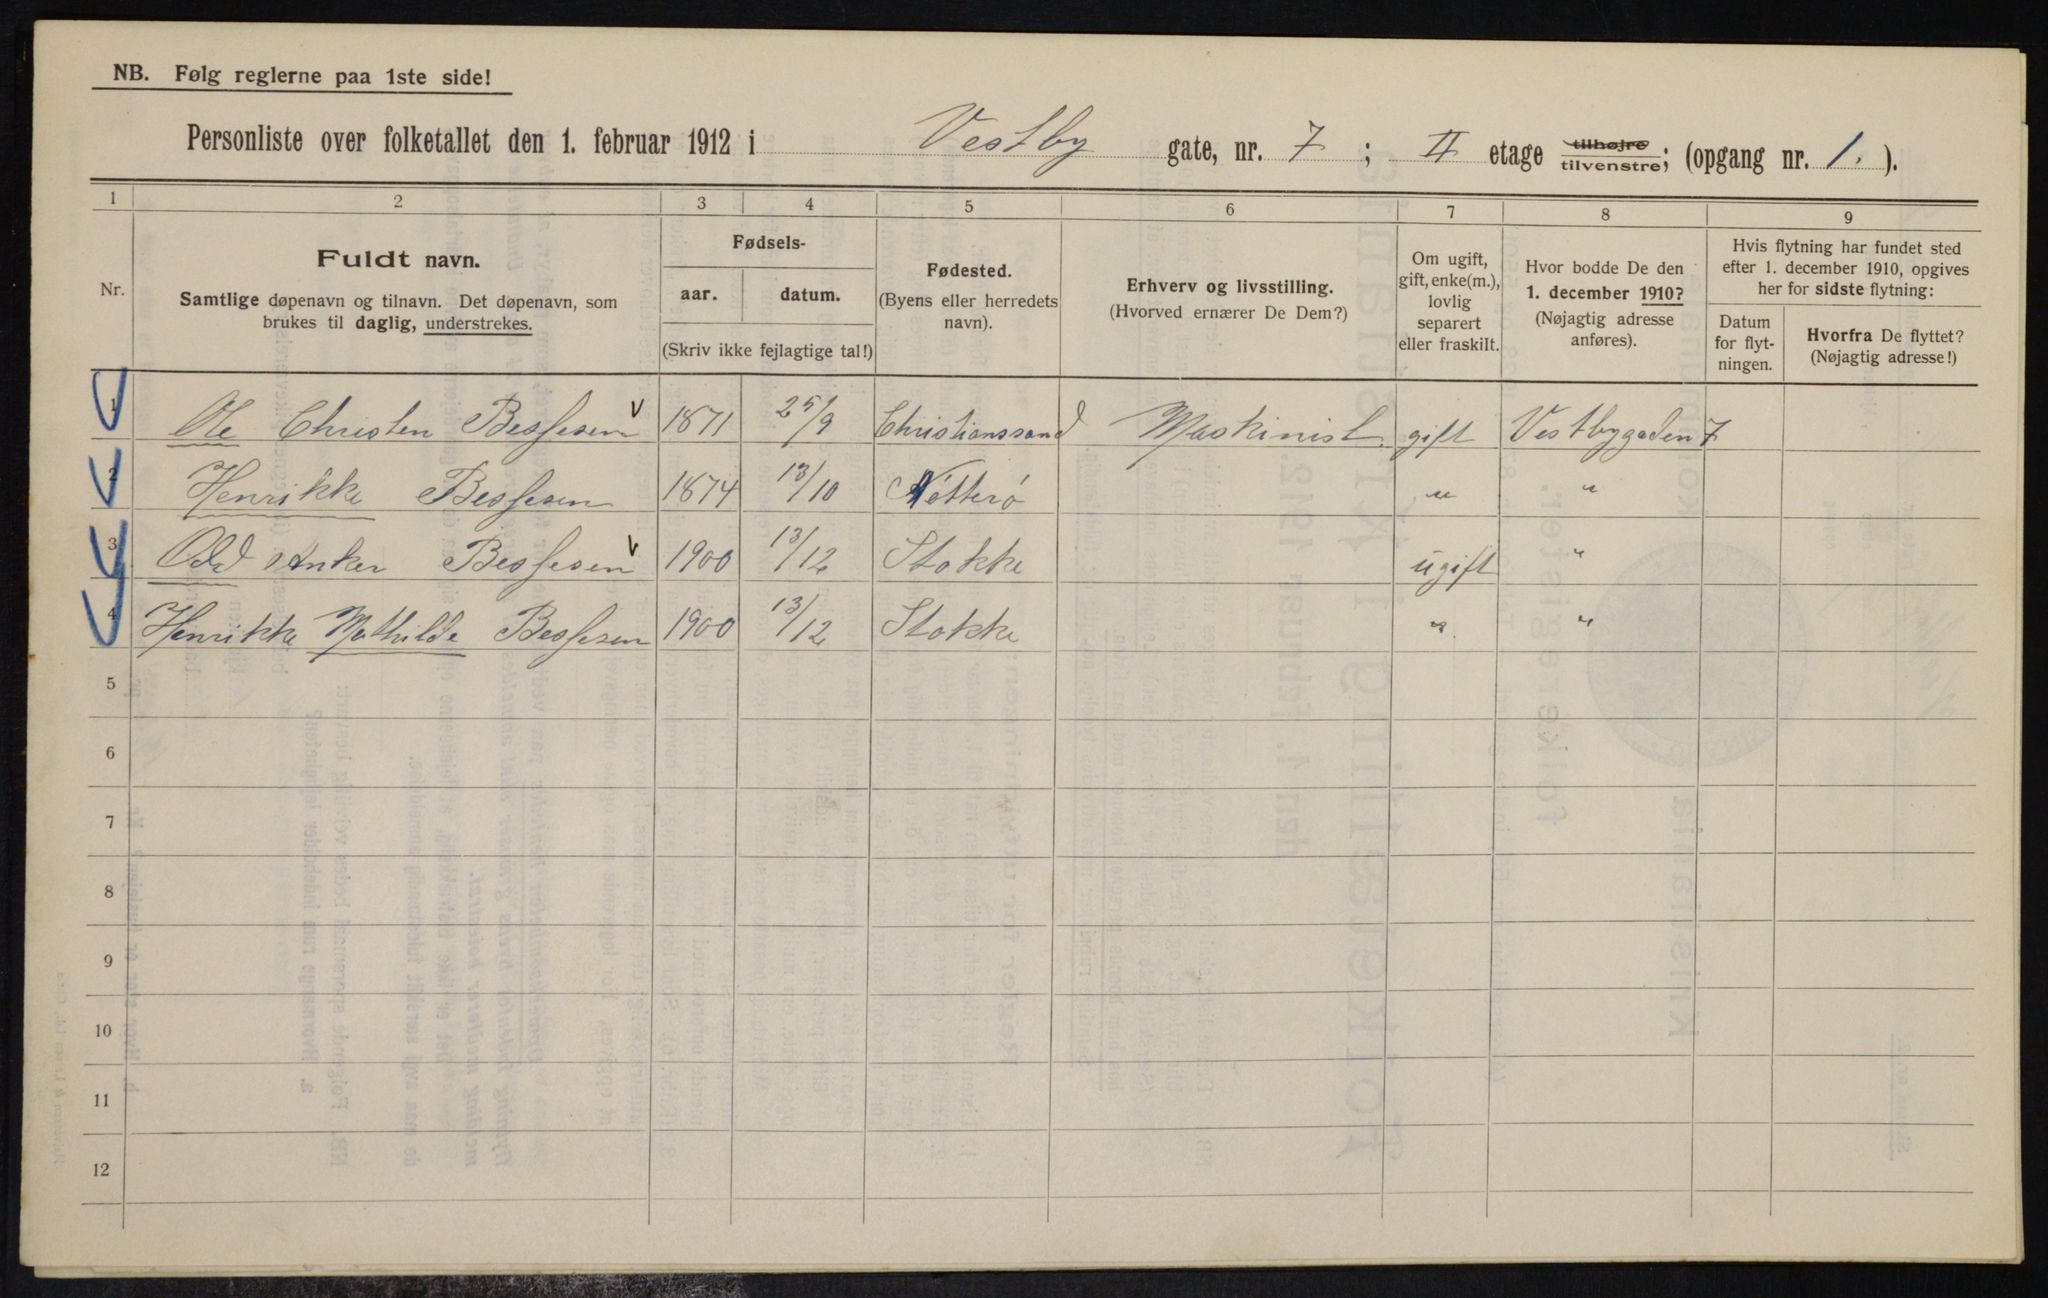 NB. Følg reglerne paa 1ste side!
Personliste over folketallet den 1. februar 1912 i Vestby gate, nr. 7 ; II etage tilhøjre tilvenstre; (opgang nr. 1. ).
1 2 3 4 5 6 7 8 9
Nr.
Fuldt navn.
Samtlige døpenavn og tilnavn. Det døpenavn, som
brukes til daglig, understrekes.
Fødsels-
aar. datum.
(Skriv ikke fejlagtige tal!)
Fødested.
(Byens eller herredets
navn).
Erhverv og livsstilling.
(Hvorved ernærer De Dem?)
Om ugift,
gift, enke(m.),
lovlig
separert
eller fraskilt.
Hvor bodde De den
1. december 1910?
(Nøjagtig adresse
anføres).
Hvis flytning har fundet sted
efter 1. december 1910, opgives
her for sidste flytning:
Datum
for flyt-
ningen.
Hvorfra De flyttet?
(Nøjagtig adresse!)
1 Ole Christen Bessesen 1871 25/9 Christianssand Maskinist gift Vestbygaden 7
2 Henrikke Bessesen 1874 13/10 Nötterö " "
3 Odd Anker Bessesen 1900 13/12 Stokke ugift "
4 Henrikke Mathilde Bessesen 1900 13/12 Stokke " "
5
6
7
8
9
10
11
12